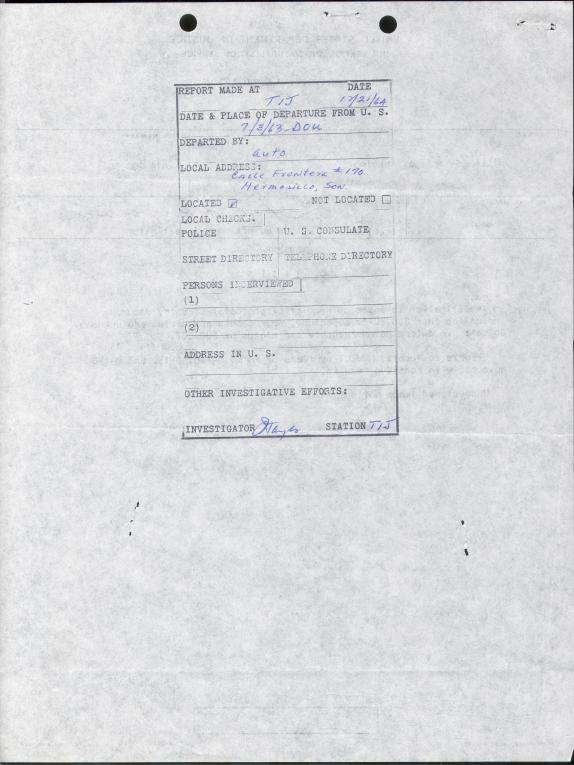 REPORT MADE AT DATE
TIJ 12/21/64
DATE & PLACE OF DEPARTURE FROM U. S.
7/3/63-DOU
DEPARTED BY:
auto
LOCAL ADDRESS:
Calle Frontera #170
Hermosillo, Son.
LOCATED NOT LOCATED
LOCAL CHECKS:
POLICE U. S. CONSULATE
STREET DIRECTORY TELEPHONE DIRECTORY
PERSONS INTERVIEWED
(1)
(2)
ADDRESS IN U. S.
OTHER INVESTIGATIVE EFFORTS:
INVESTIGATOR STATION TIJ